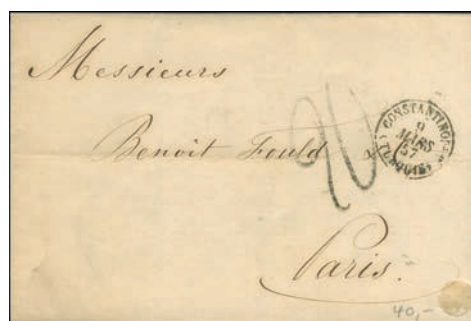 Messieurs
Benoit Fould
20
CONSTANTINOPLE
9
MARS
57
(TURQUIE)
Paris.
40,-